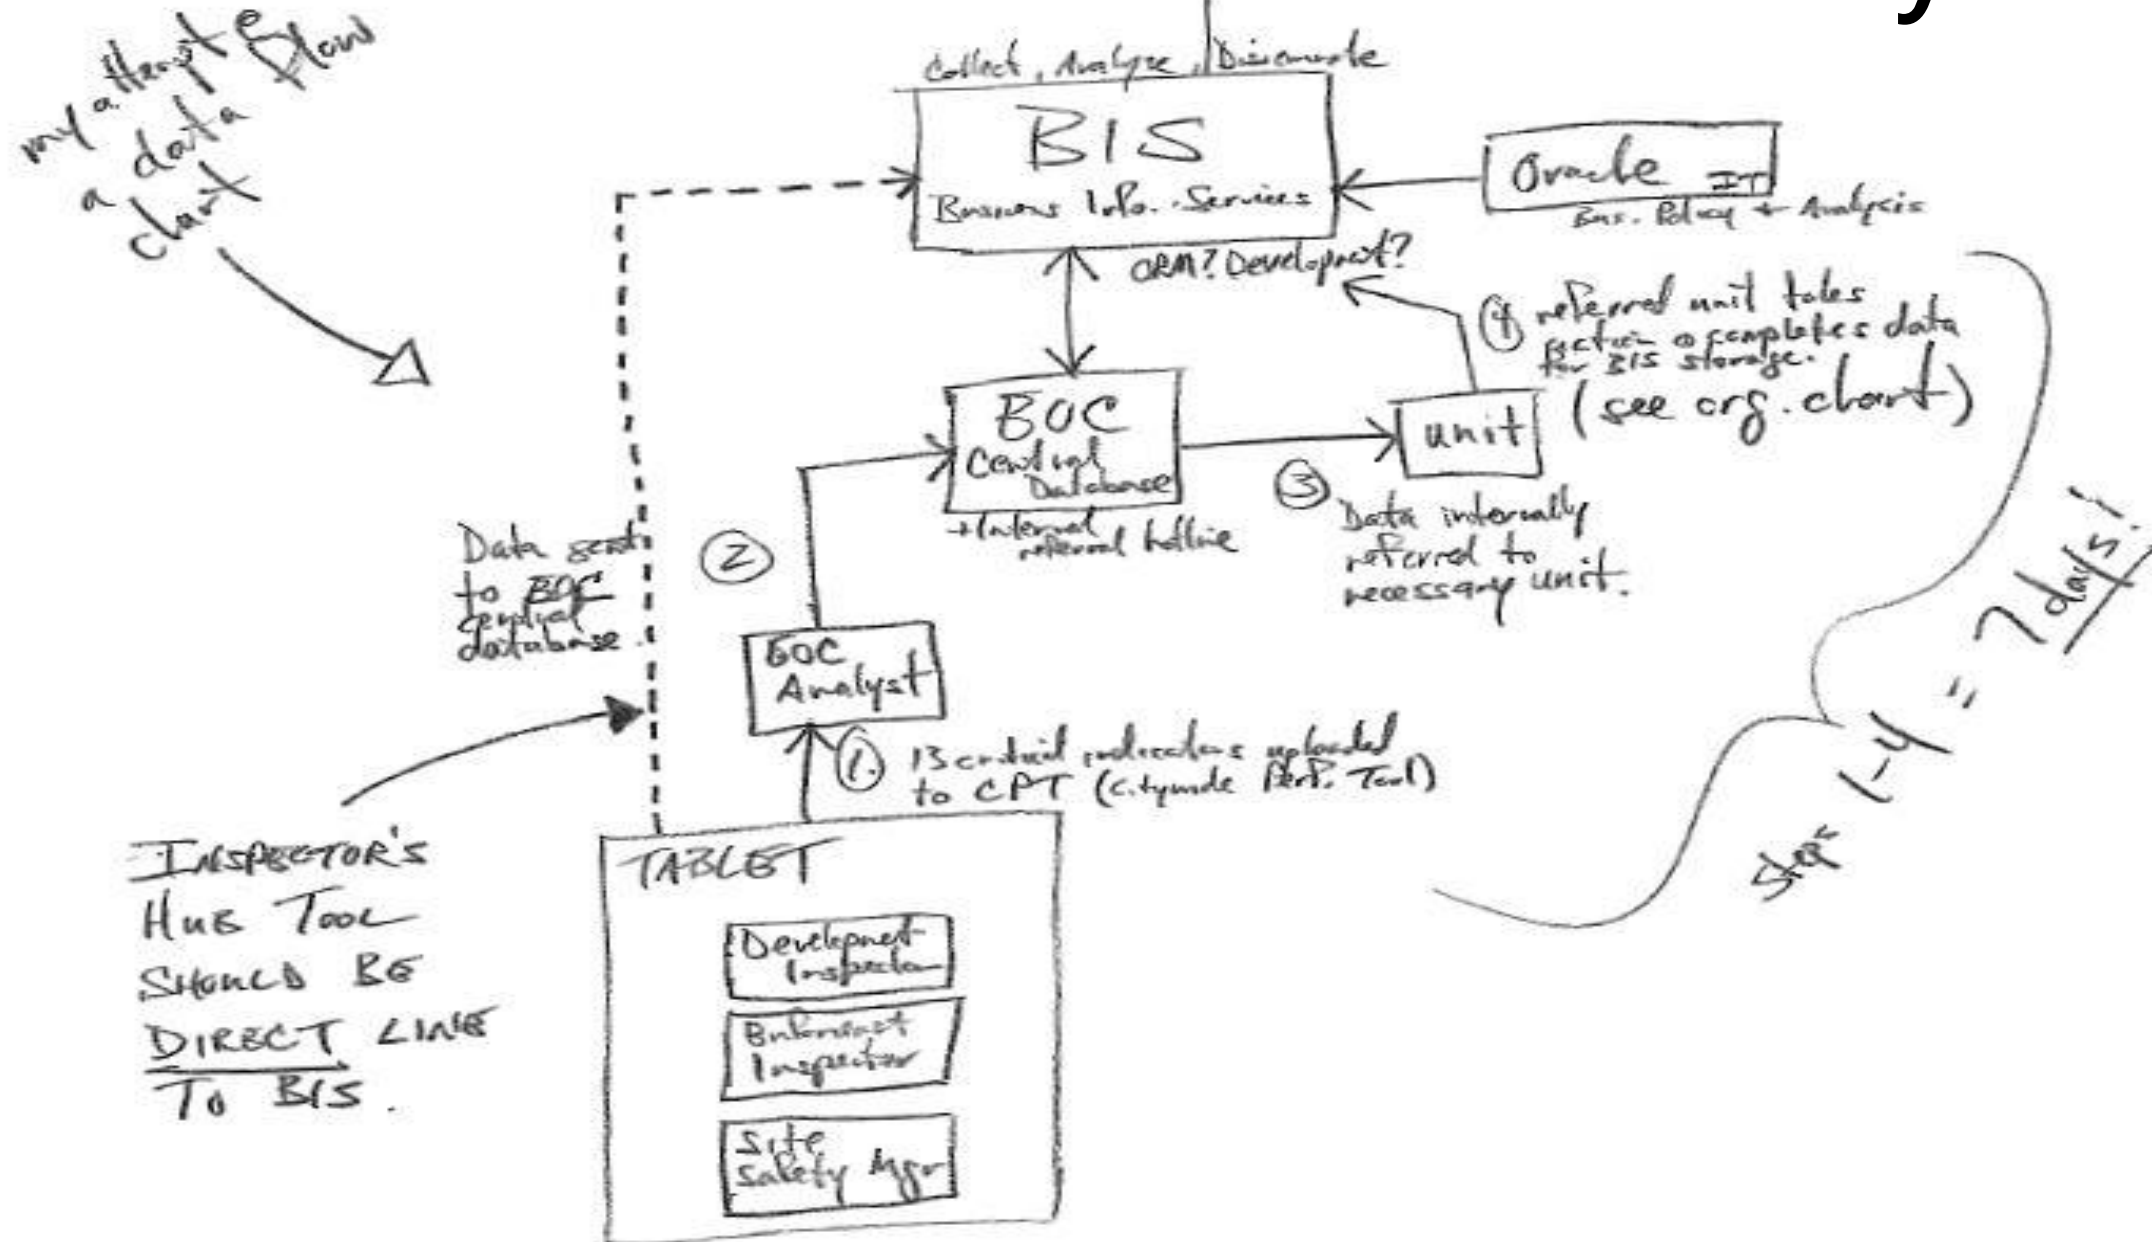 my attempt @
a data flow
chart
Collect, Analyze, Disseminate
BIS
Business Info. Services
Oracle IT
Bus. Policy + Analysis
CRM? Development?
④ referred unit takes
action & completes data
for BIS storage.
(see org. chart)
EOC
Central
Database
→ Internal
referral hotline
unit
③ Data internally
referred to
necessary unit.
②
Data sent
to EOC
central
database.
EOC
Analyst
① 13 critical indicators uploaded
to CPT (Citywide Perf. Tool)
Steps 1-4 = 7 days!
INSPECTOR'S
HUB TOOL
SHOULD BE
DIRECT LINE
TO BIS.
TABLET
Development
Inspector
Enforcement
Inspector
Site
Safety Mgr